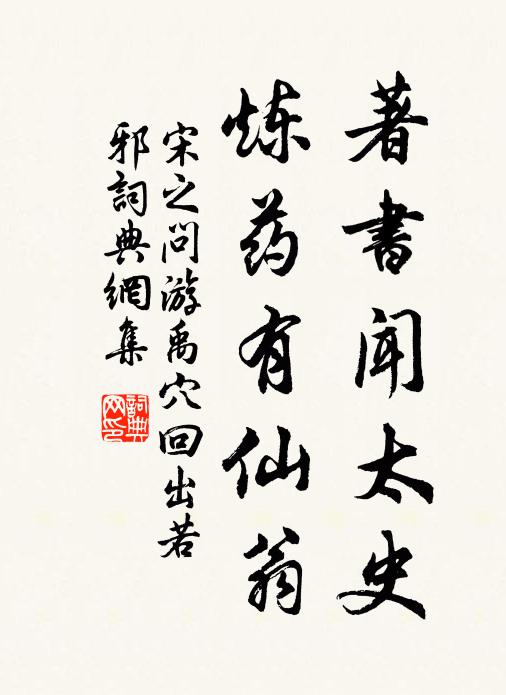 著書闻太史
炼药有仙翁
宋之问游禹穴回出若
邪詞典網集
詞典网印